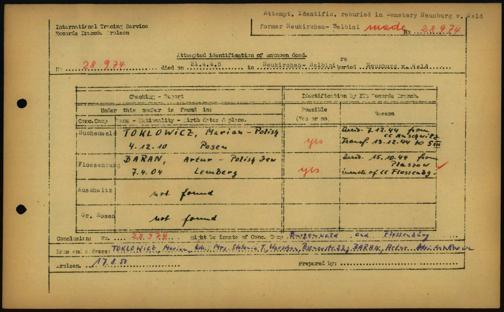 International Tracing Service
Records Branch Arolsen
Attempt. Identific. reburied in Cemetary Neunburg v. Wald
Former Neukirchen- Balbini made No. 28974
Attempted identification of unknown dead.
No. 28974 died on 21.4.45 in Neukirchen- Balbini re buried Neunburg v. Wald
Checking - Report
Identification by ITS Records Branch.
Under this number is found in:
Possible
Yes or no.
Reason
Conc.Camp Name - Nationality - Birth date & place.
Buchenwald TOKLOWICZ, Marian - Polish
4.12.10 Posen
yes
7.12.44 from
CC Auschwitz
Transf. 13.12.44 to
Flossenburg BARAN, Artur - Polish Jew
7.4.04 Lemberg
yes
15.10.44 from
Plaszow
of CC Flossenbg.
Auschwitz not found
Gr. Rosen not found
Conclusion: No. 28974 might be of Conc. Camp Buchenwald and Flossenbürg
TOKLOWICZ, Marian, BARAN, Artur
Arolsen, 17.8.50
Prepared by: